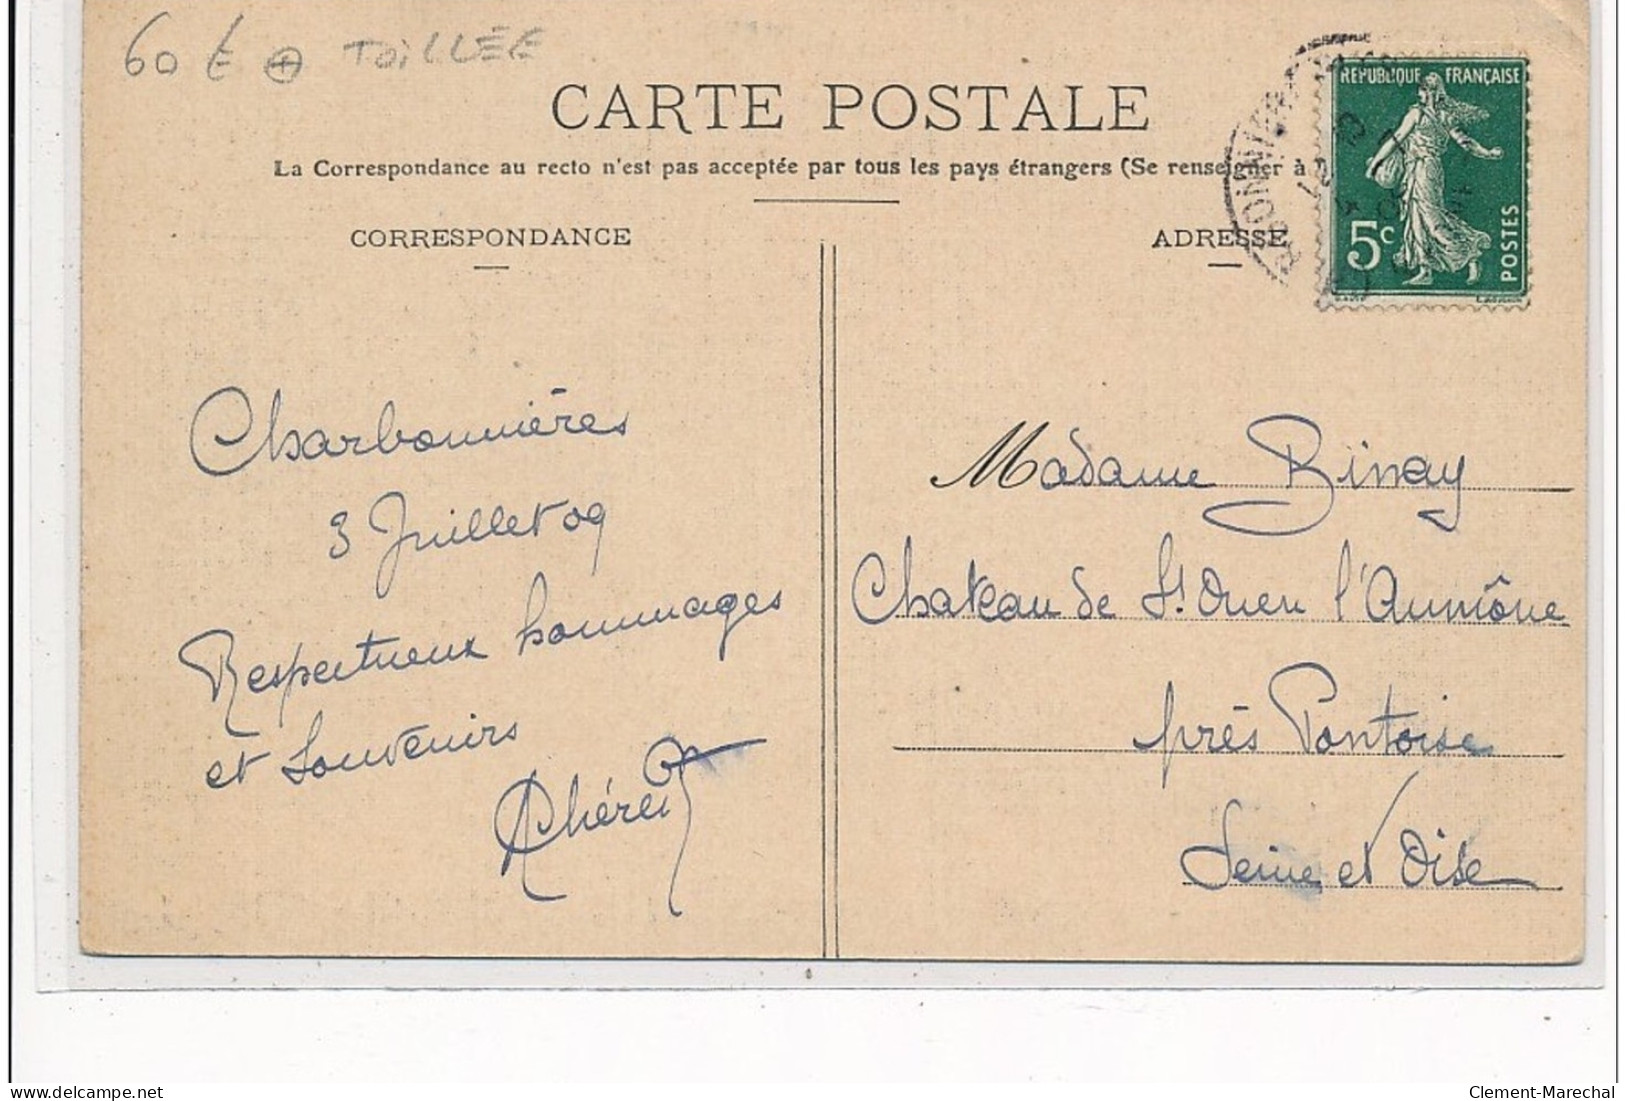 60 € ⊕ TOILLÉE
CARTE POSTALE
La Correspondance au recto n'est pas acceptée par tous les pays étrangers (Se renseigner à
CORRESPONDANCE
ADRESSE
RÉPUBLIQUE FRANÇAISE
5c
POSTES
Charbonnières
3 Juillet 09
Respectueux hommages
et Souvenirs
Madame Binay
Chateau de St Ouen l'Aumône
près Pontoise
Seine et Oise
delcampe.net
Clement-Marechal